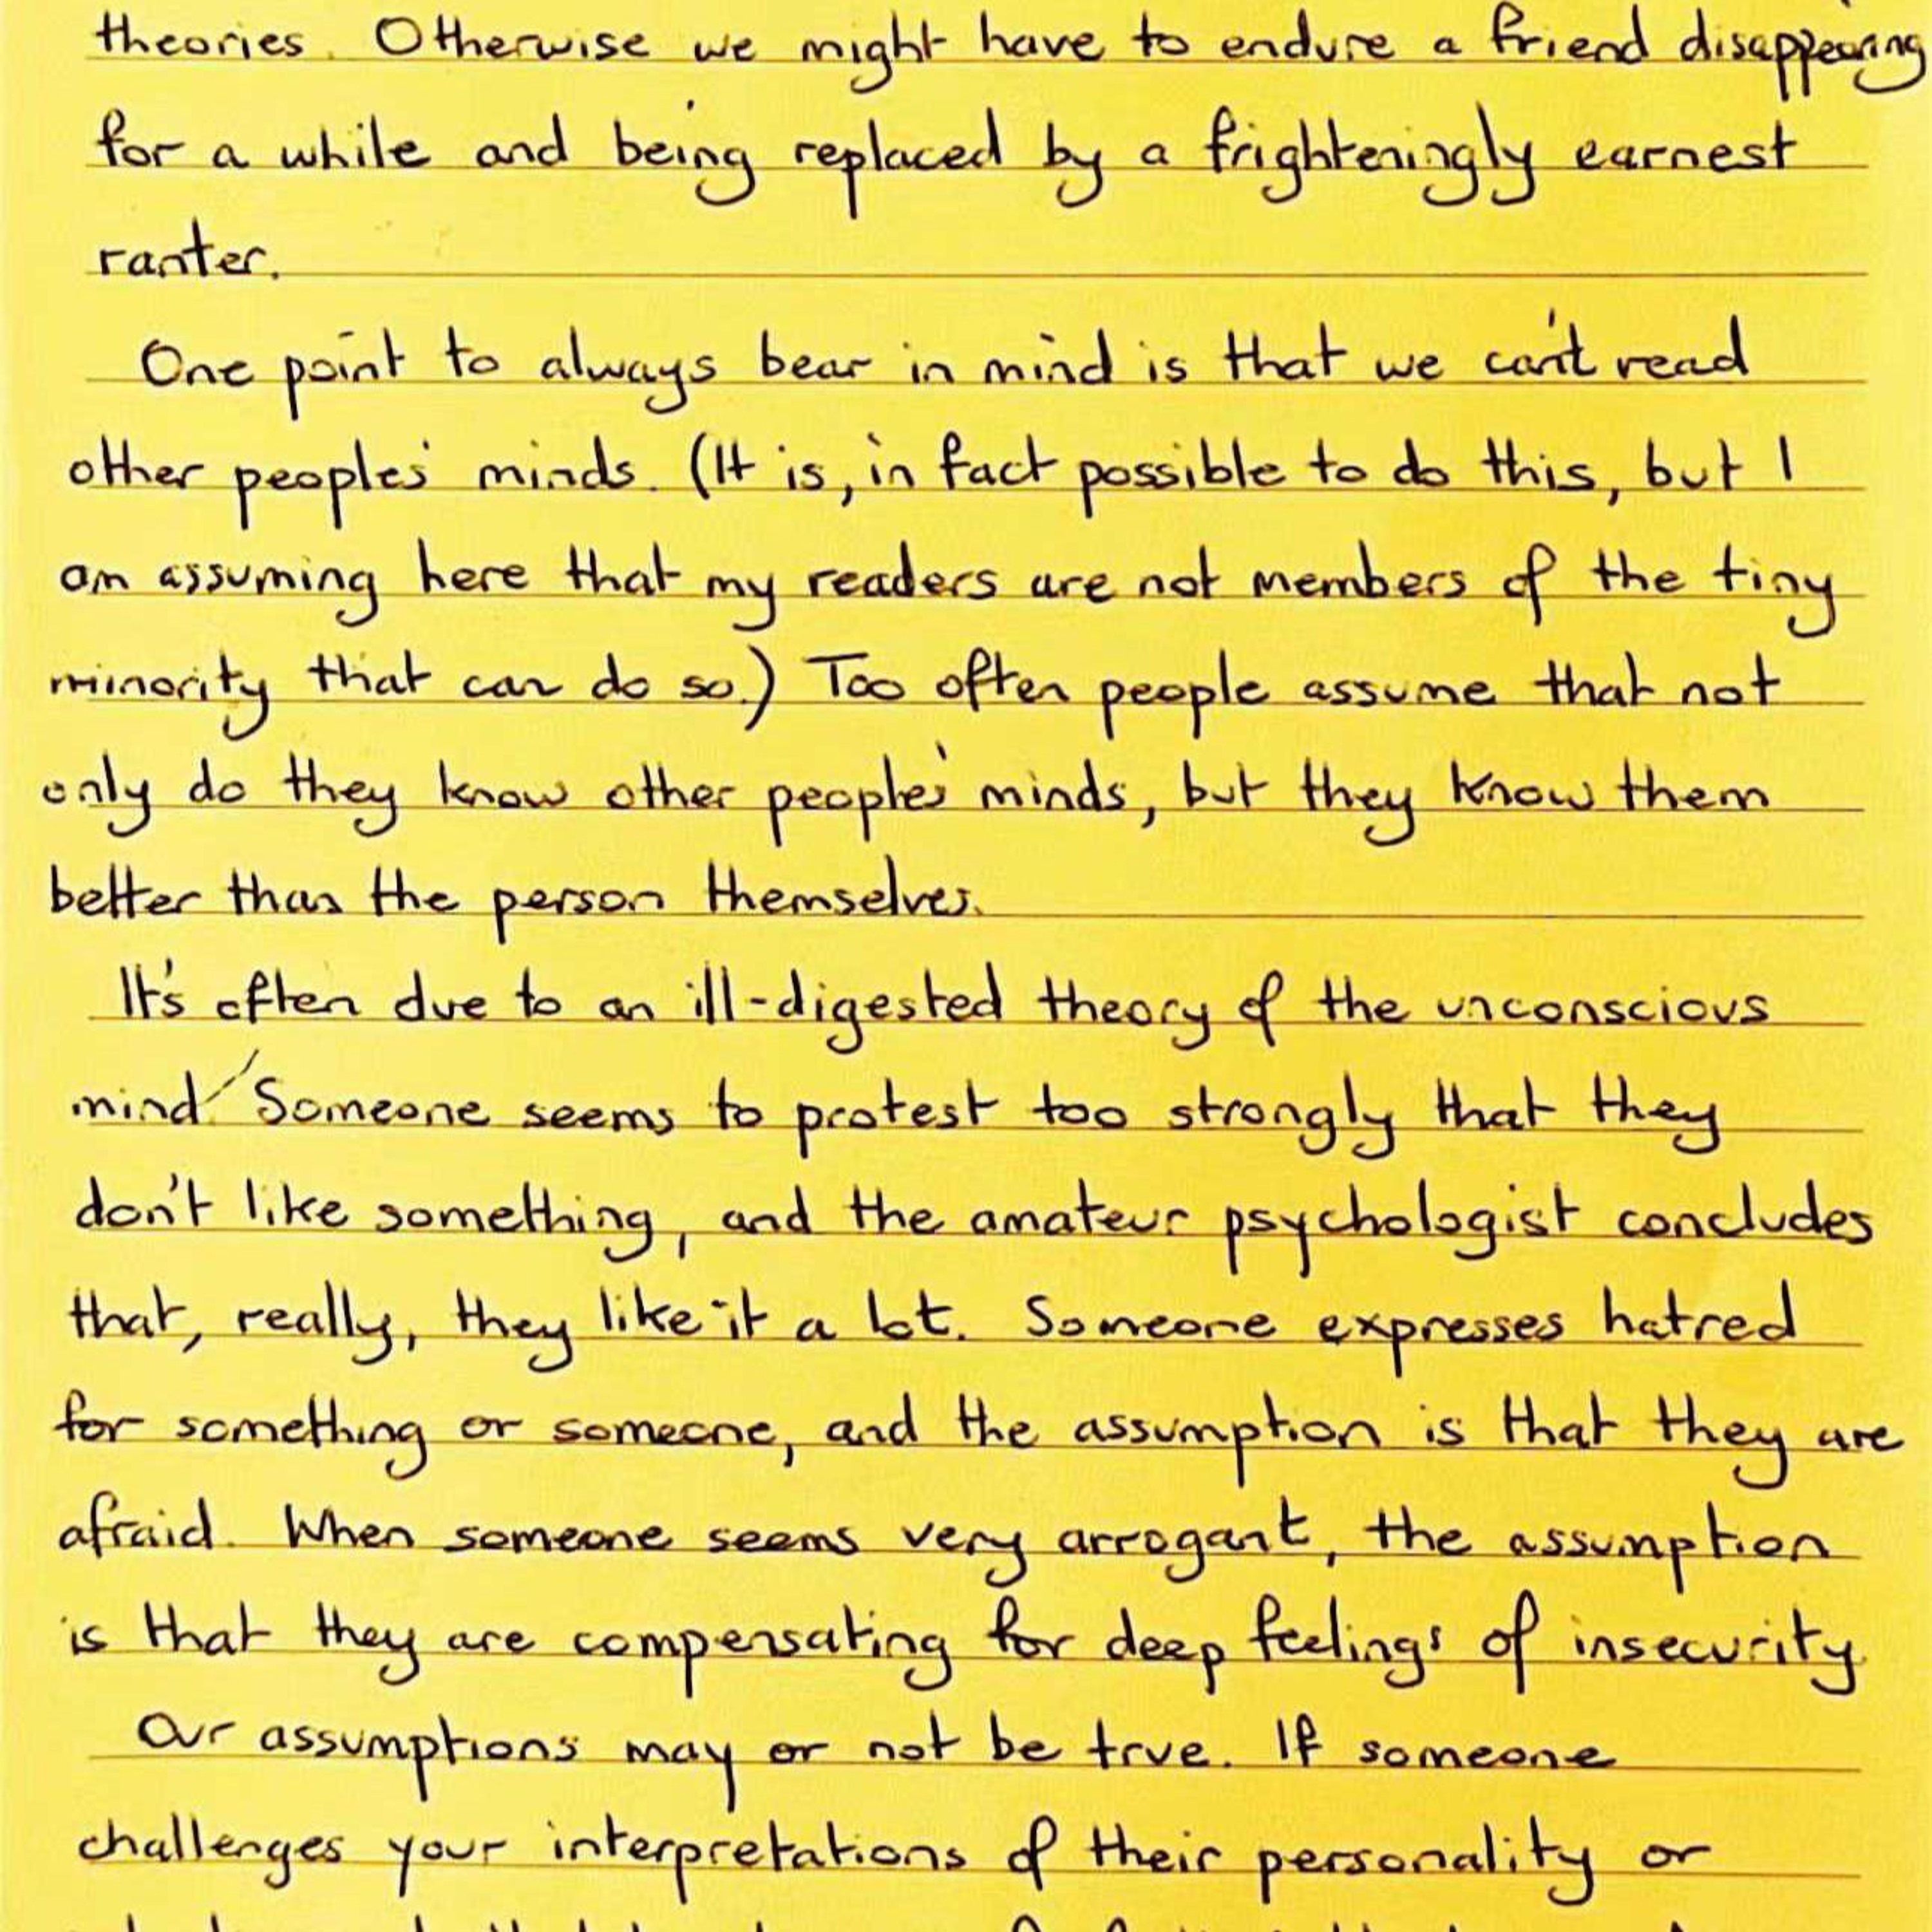 theories. Otherwise we might have to endure a friend disappearing
for a while and being replaced by a frighteningly earnest
ranter.
One point to always bear in mind is that we can't read
other people's minds. (It is, in fact possible to do this, but I
am assuming here that my readers are not members of the tiny
minority that can do so.) Too often people assume that not
only do they know other people's minds, but they know them
better than the person themselves.
It's often due to an ill-digested theory of the unconscious
mind. Someone seems to protest too strongly that they
don't like something, and the amateur psychologist concludes
that, really, they like it a lot. Someone expresses hatred
for something or someone, and the assumption is that they are
afraid. When someone seems very arrogant, the assumption
is that they are compensating for deep feelings of insecurity.
Our assumptions may or not be true. If someone
challenges your interpretations of their personality or